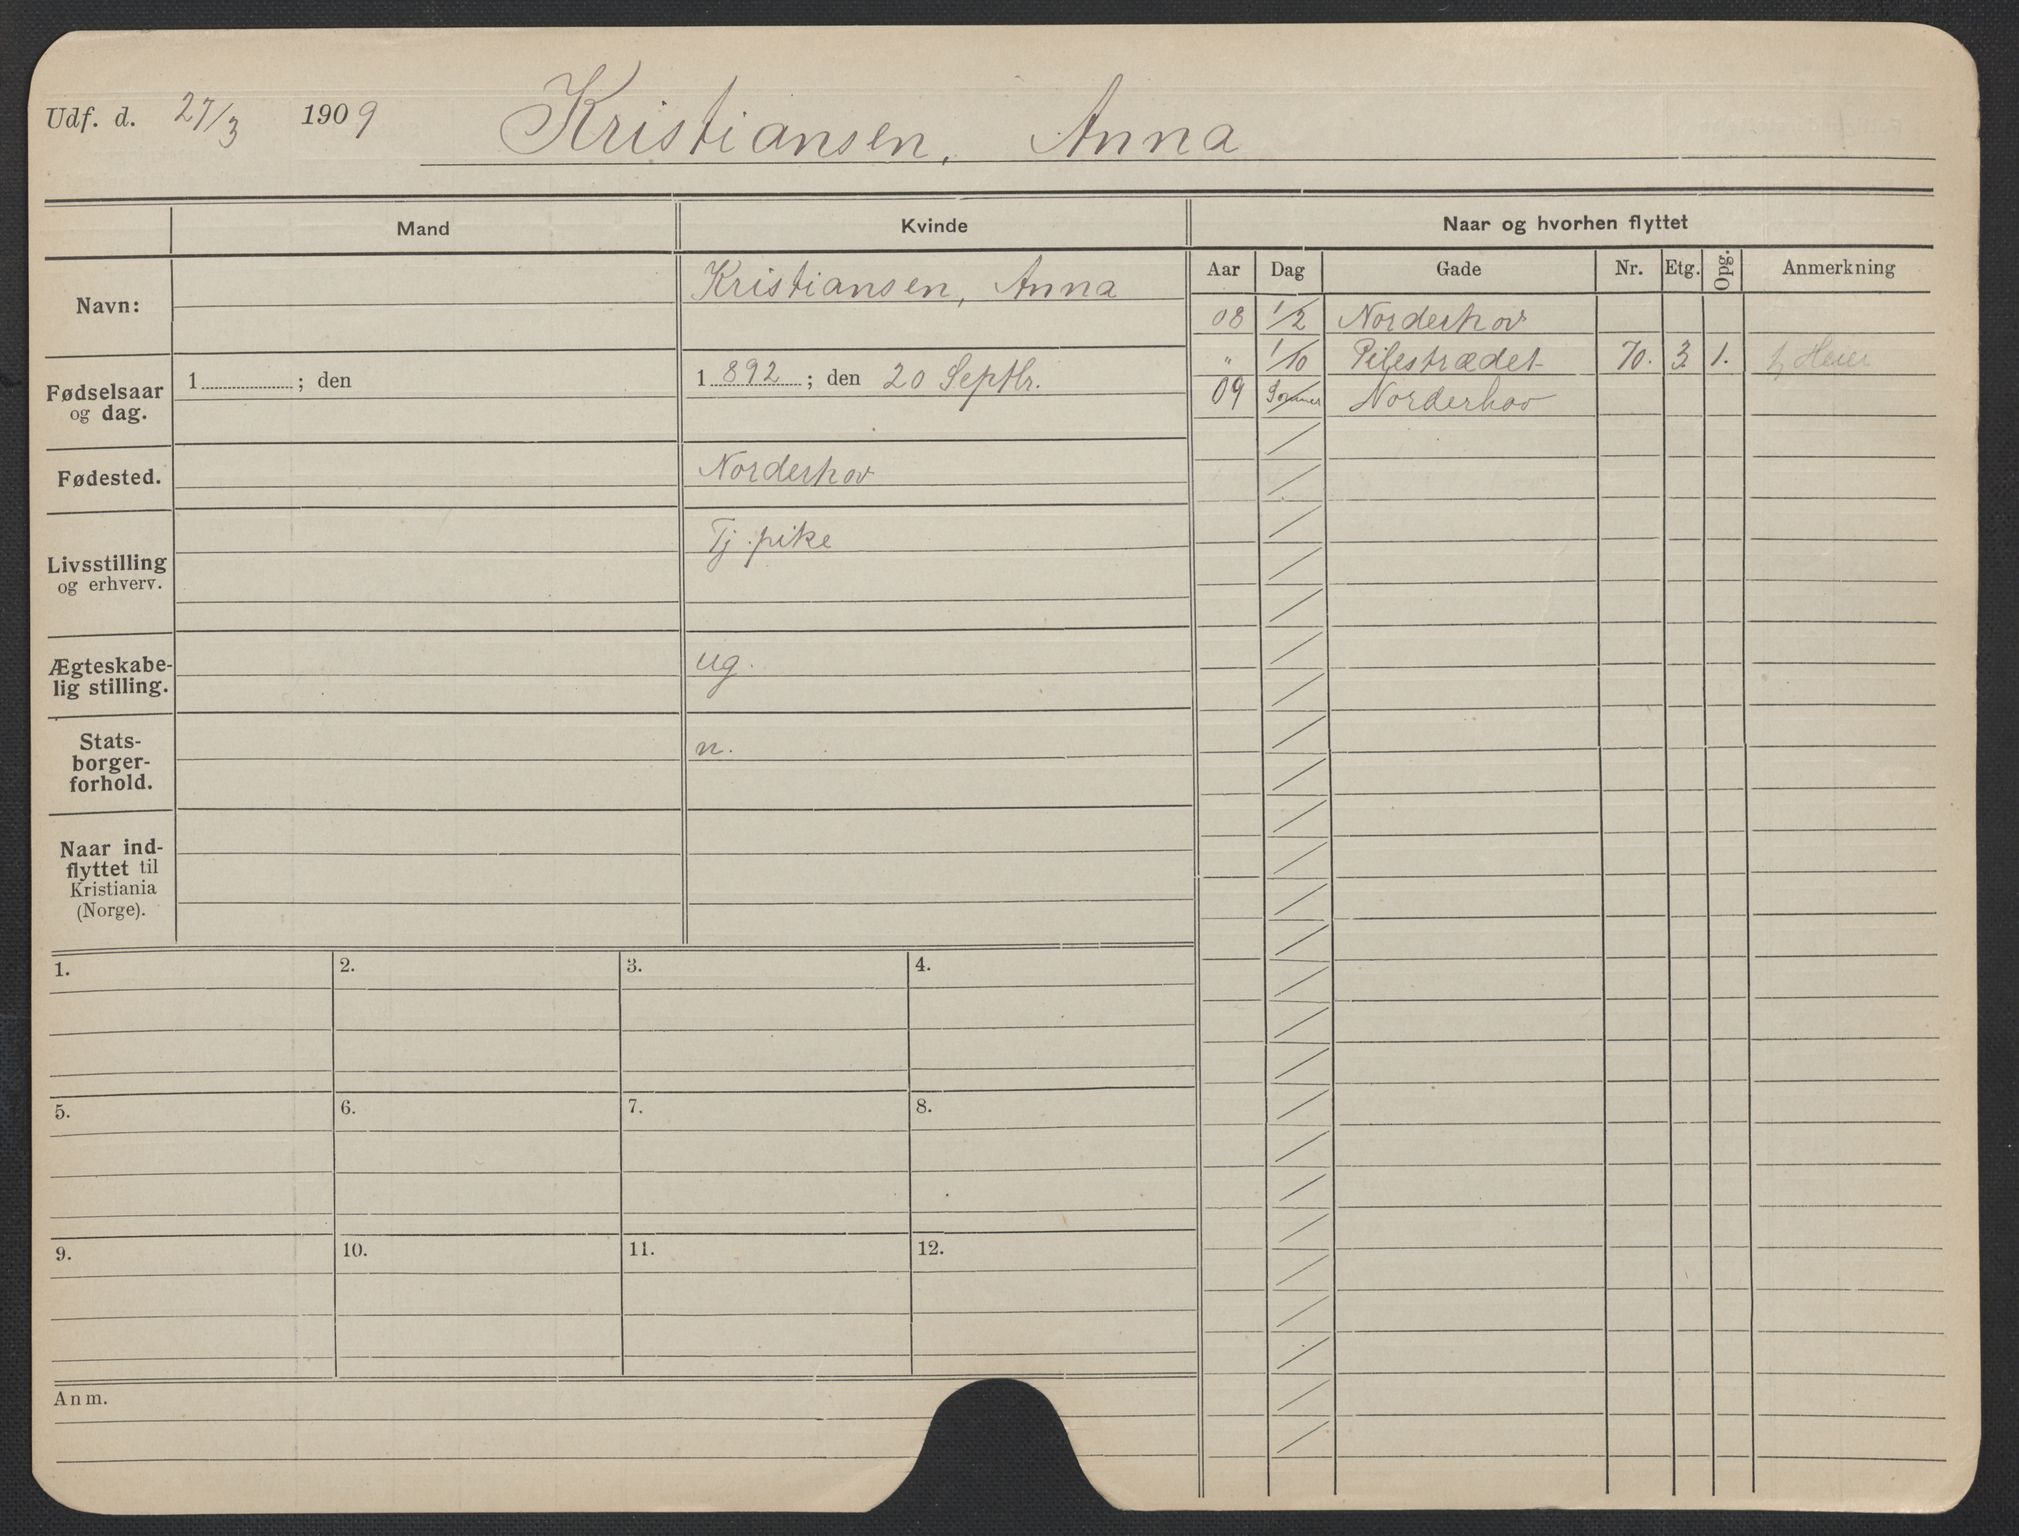 Udf. d. 27/3 1909 Kristiansen, Anna
Mand Kvinde Naar og hvorhen flyttet
Aar Dag Gade Nr. Etg. Opg. Anmerkning
Navn: Kristiansen, Anna
08 1/2 Norderhov
" 1/10 Pilestrædet 70. 3. 1. Heier
09 Sommer Norderhov
Fødselsaar
og dag.
1 ; den
1892; den 20 Septbr.
Fødested. Norderhov
Livsstilling
og erhverv.
Tj. pike
Ægteskabe-
lig stilling.
ug.
Stats-
borger-
forhold.
n.
Naar ind-
flyttet til
Kristiania
(Norge).
1. 2. 3. 4.
5. 6. 7. 8.
9. 10. 11. 12.
Anm.